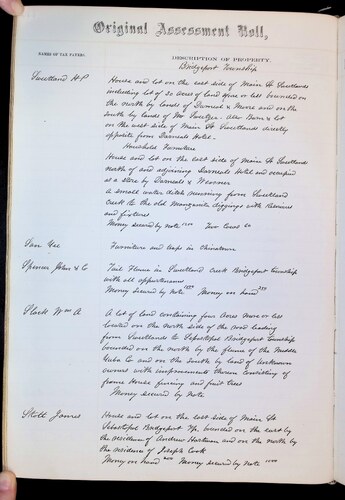 Original Assessment Roll,
NAMES OF TAX PAYERS.
DESCRIPTION OF PROPERTY.
Bridgeport Township
Sweetland H P
House and lot on the east side of Main St Sweetlands
including lot of 30 acres of land more or less bounded on
the north by lands of Darneal & Moore and on the
south by lands of Mr Switzer. Also Barn & lot
on the west side of Main St Sweetlands directly
opposite from Darneals Hotel.
Household Furniture
House and lot on the east side of Main St Sweetlands
north of and adjoining Darneals Hotel and occupied
as a store by Darneals & Warner
A small water ditch running from Sweetland
Creek to the old Manzanita diggings with Reservoir
and fixtures
Money secured by note Two Cows
San Gee
Furniture and traps in Chinatown
Spencer John & Co
Tail Flume in Sweetland Creek Bridgeport township
with all appurtenances
Money secured by note Money on hand
Stark Wm A
A lot of land containing four Acres more or less
located on the north side of the road leading
from Sweetlands to Sebastopol Bridgeport Township
bounded on the north by the flume of the Middle
Yuba Co and on the south by land of unknown
owner with improvements thereon consisting of
frame House fencing and fruit trees
Money secured by Note
Stott James
House and lot on the east side of Main St
Sebastopol Bridgeport Tp. bounded on the east by
the residence of Andrew Hartman and on the north by
the residence of Joseph Cook
Money on hand Money secured by note